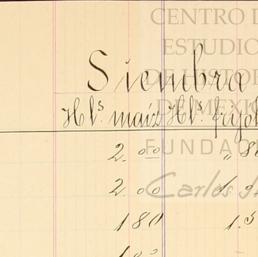 CENTRO D
ESTUDIO
DE HISTOR
DE MÉXIC
FUNDAC
Carlos S
Siembra
Hls. maíz Hls. frijol
2.00
2.00
180 1.5